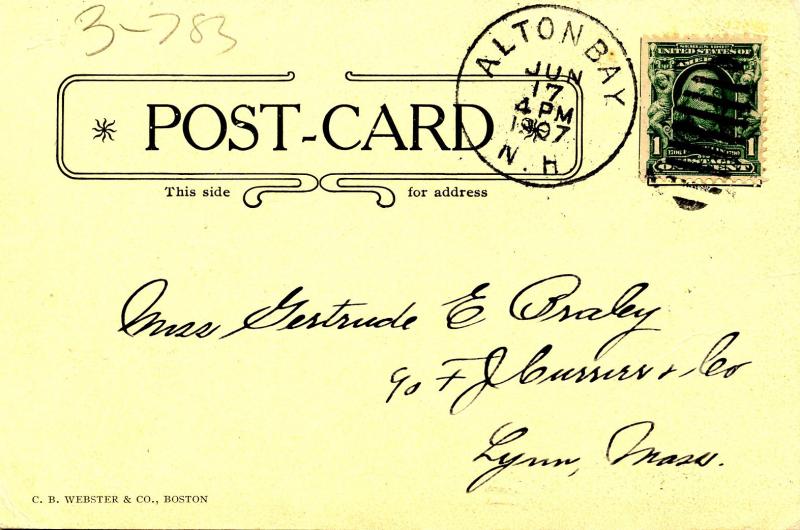 3-783
ALTON BAY
JUN
17
4 PM
1907
N.H.
SERIES 1902
UNITED STATES OF
AMERICA
1 1
ONE CENT
POST-CARD
This side for address
Miss Gertrude E Braley
c/o F J & Co
Lynn, Mass.
C. B. WEBSTER & CO., BOSTON